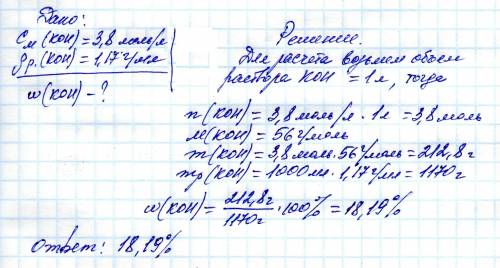 Дано:
См (КОН) = 3,8 моль/л
ρр. (КОН) = 1,17 г/мл
ω (КОН) - ?
Решение.
Для расчета возьмем объем
раствора КОН = 1л, тогда
n (КОН) = 3,8 моль/л · 1л = 3,8 моль
М (КОН) = 56 г/моль
m (КОН) = 3,8 моль · 56 г/моль = 212,8 г
mр (КОН) = 1000 мл · 1,17 г/мл = 1170 г
ω (КОН) = 212,8 г / 1170 г · 100% = 18,19%
Ответ: 18,19%